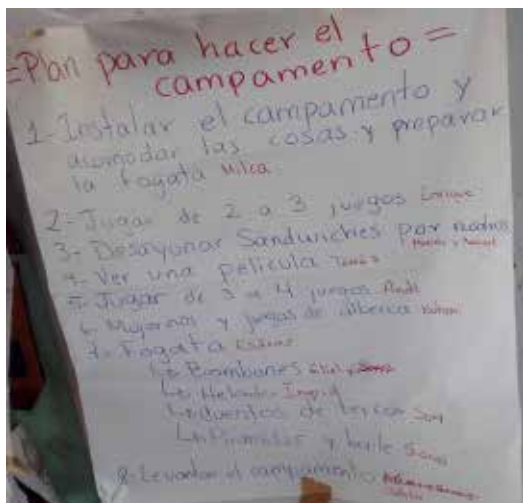 =Plan para hacer el
campamento=
1-Instalar el campamento y
acomodar las cosas y preparar
la fogata Milca
2-Jugar de 2 a 3 juegos
3-Desayunar Sandwiches por
4-Ver una película
5-Jugar de 3 a 4 juegos
6-Mojarnos y juegos de alberca
7-Fogata
Bombones
Helados Ingrid
Cuentos de terror
y baile
8-Levantar el campamento